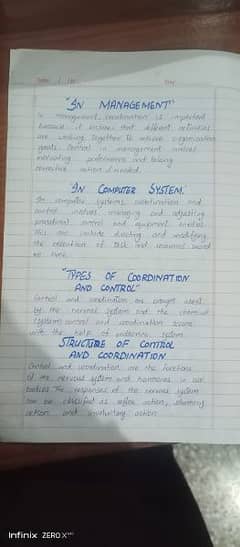 "IN MANAGEMENT"
In management coordination is important
because it ensures that different activities
are working together to achieve organization
goals. Control in management involves
evaluating performance and taking
corrective action if needed.
"IN COMPUTER SYSTEM."
In computer systems, coordination and
control involves managing and adjusting
procedural control and equipment
this can include directing and modifying
the execution of task and resources
"TYPES OF COORDINATION
AND CONTROL"
Control and coordination are
by the nervous system and the chemical
system control and coordination
with the help of endocrine system
STRUCTURE OF CONTROL
AND COORDINATION
Control and coordination are the functions
of the nervous system and hormones in our
bodies. The responses of the nervous system
can be classified as reflex action, voluntary
action and involuntary action.
Infinix ZERO X